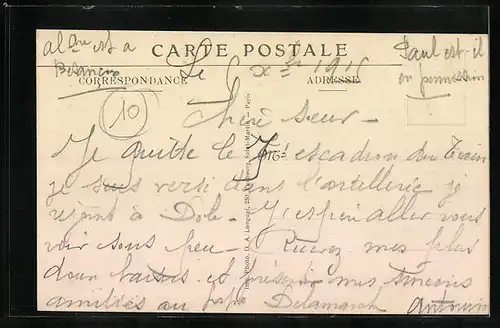 est a
Besançon
CARTE POSTALE
CORRESPONDANCE
ADRESSE
Le 6 Xbre 1915
Paul est-il
en permission
10
Chère sœur -
Je quitte le escadron du Train
je suis versé dans l'artillerie je
rejoins à Dole - J'espère aller vous
voir sous peu - Recevez mes plus
doux baisers et mes sincères
amitiés au papa Delamarche
Imp. Photo. D. A. Longuet, 250, Faubourg Saint-Martin - Paris